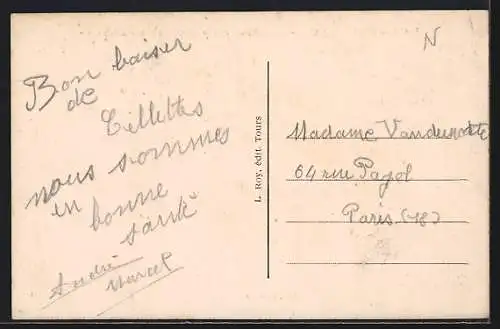 Bon baiser
de
Cillettes
nous sommes
en bonne
santé
André
Marcel
L. Roy, édit. Tours
N
Madame
64 rue Pajol
Paris (18)